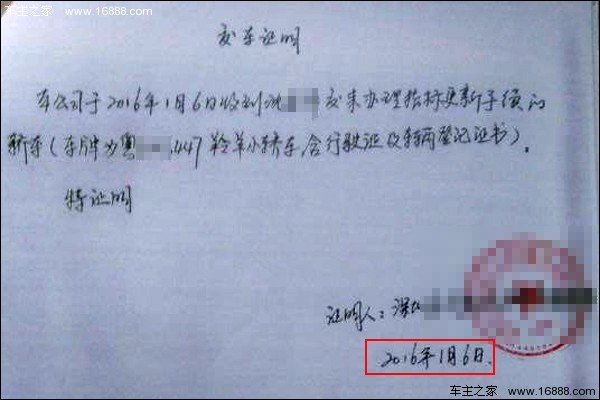 车主之家 www.16888.com
交车证明
本公司于2016年1月6日收到沈 交来办理指标更新手续的
轿车(车牌为粤 447 羚羊小轿车含行驶证及车辆登记证书)。
特证明
证明人:深圳
2016年1月6日.
车主之家 www.16888.com